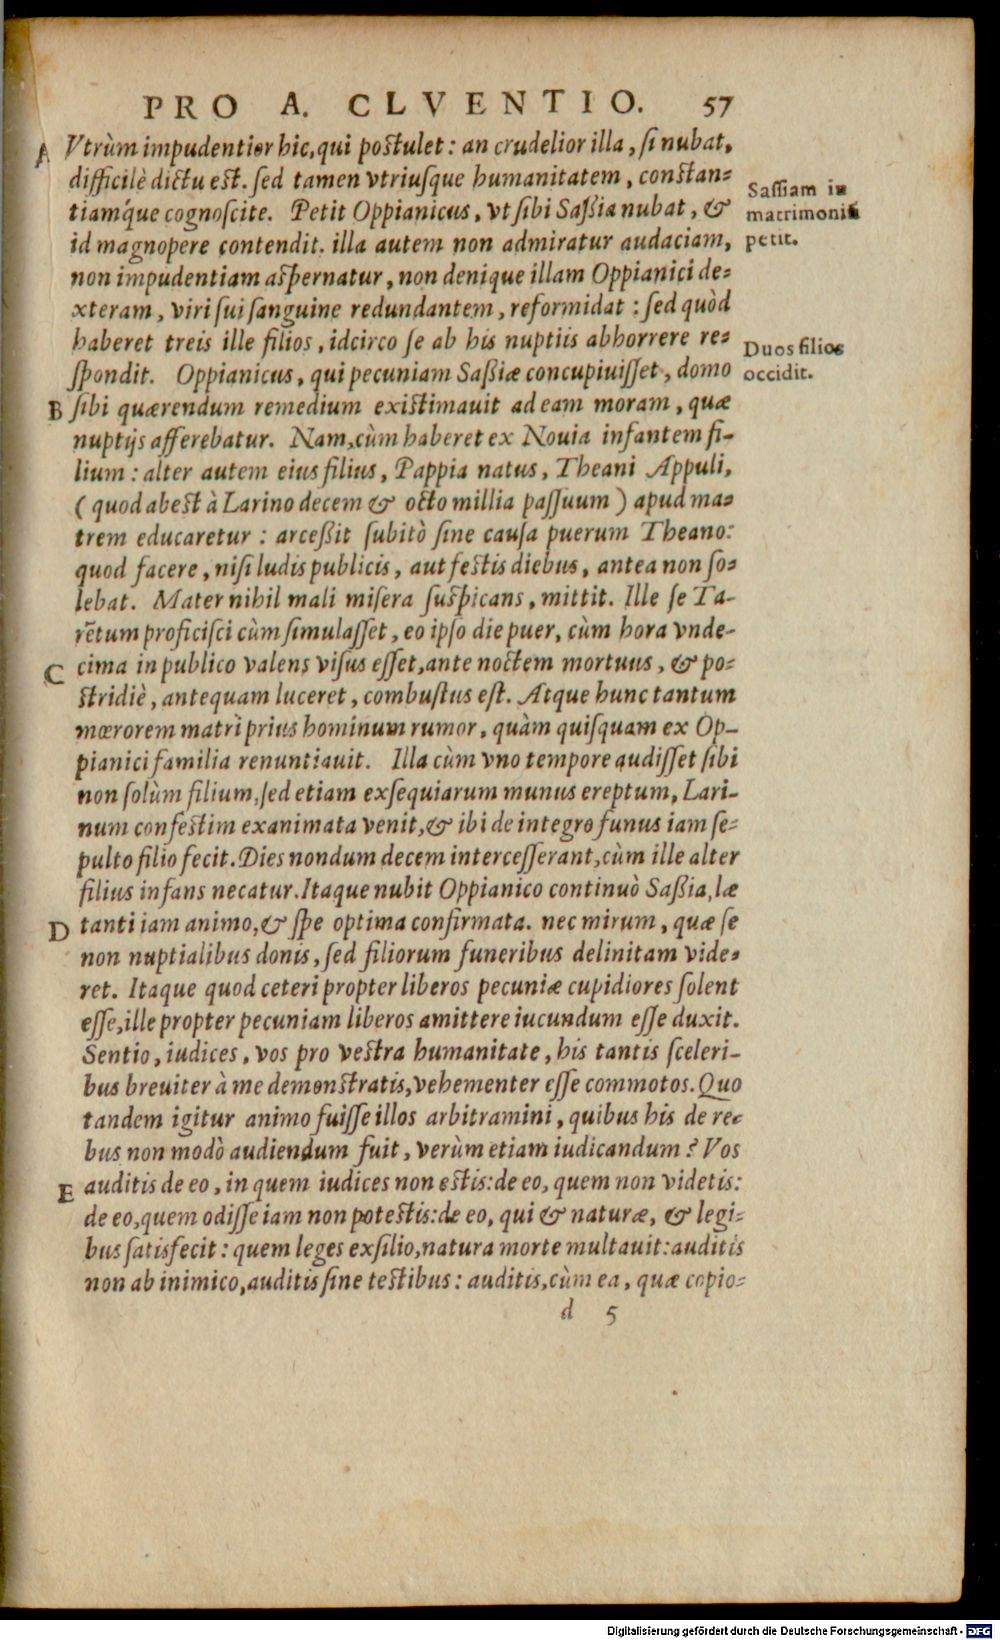 PRO A. CLVENTIO. 57
A Vtrùm impudentior hic, qui postulet: an crudelior illa, si nubat,
difficilè dictu est. sed tamen vtriusque humanitatem, constan-
tiamq́ue cognoscite. Petit Oppianicus, vt sibi Saßia nubat, &
id magnopere contendit. illa autem non admiratur audaciam,
non impudentiam aspernatur, non denique illam Oppianici de-
xteram, viri sui sanguine redundantem, reformidat: sed quòd
haberet treis ille filios, idcirco se ab his nuptiis abhorrere re-
spondit. Oppianicus, qui pecuniam Saßiæ concupiuisset, domo
B sibi quærendum remedium existimauit ad eam moram, quæ
nuptijs afferebatur. Nam, cùm haberet ex Nouia infantem fi-
lium: alter autem eius filius, Pappia natus, Theani Appuli,
(quod abest à Larino decem & octo millia passuum) apud ma-
trem educaretur: arceßit subitò sine causa puerum Theano:
quod facere, nisi ludis publicis, aut festis diebus, antea non so-
lebat. Mater nihil mali misera suspicans, mittit. Ille se Ta-
rētum proficisci cùm simulasset, eo ipso die puer, cùm hora vnde-
C cima in publico valens visus esset, ante noctem mortuus, & po-
stridiè, antequam luceret, combustus est. Atque hunc tantum
mœrorem matri prius hominum rumor, quàm quisquam ex Op-
pianici familia renuntiauit. Illa cùm vno tempore audisset sibi
non solùm filium, sed etiam exsequiarum munus ereptum, Lari-
num confestim exanimata venit, & ibi de integro funus iam se-
pulto filio fecit. Dies nondum decem intercesserant, cùm ille alter
filius infans necatur. Itaque nubit Oppianico continuò Saßia, læ
D tanti iam animo, & spe optima confirmata. nec mirum, quæ se
non nuptialibus donis, sed filiorum funeribus delinitam vide-
ret. Itaque quod ceteri propter liberos pecuniæ cupidiores solent
esse, ille propter pecuniam liberos amittere iucundum esse duxit.
Sentio, iudices, vos pro vestra humanitate, his tantis sceleri-
bus breuiter à me demonstratis, vehementer esse commotos. Quo
tandem igitur animo fuisse illos arbitramini, quibus his de re-
bus non modò audiendum fuit, verùm etiam iudicandum? Vos
E auditis de eo, in quem iudices non estis: de eo, quem non videtis:
de eo, quem odisse iam non potestis: de eo, qui & naturæ, & legi-
bus satisfecit: quem leges exsilio, natura morte multauit: auditis
non ab inimico, auditis sine testibus: auditis, cùm ea, quæ copio-
d 5
Sassiam in
matrimoniū
petit.
Duos filios
occidit.
Digitalisierung gefördert durch die Deutsche Forschungsgemeinschaft - DFG